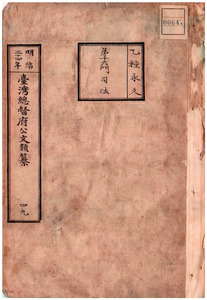 乙種永久
第十六門司法
明治
三十四年
臺灣總督府公文類纂
四九